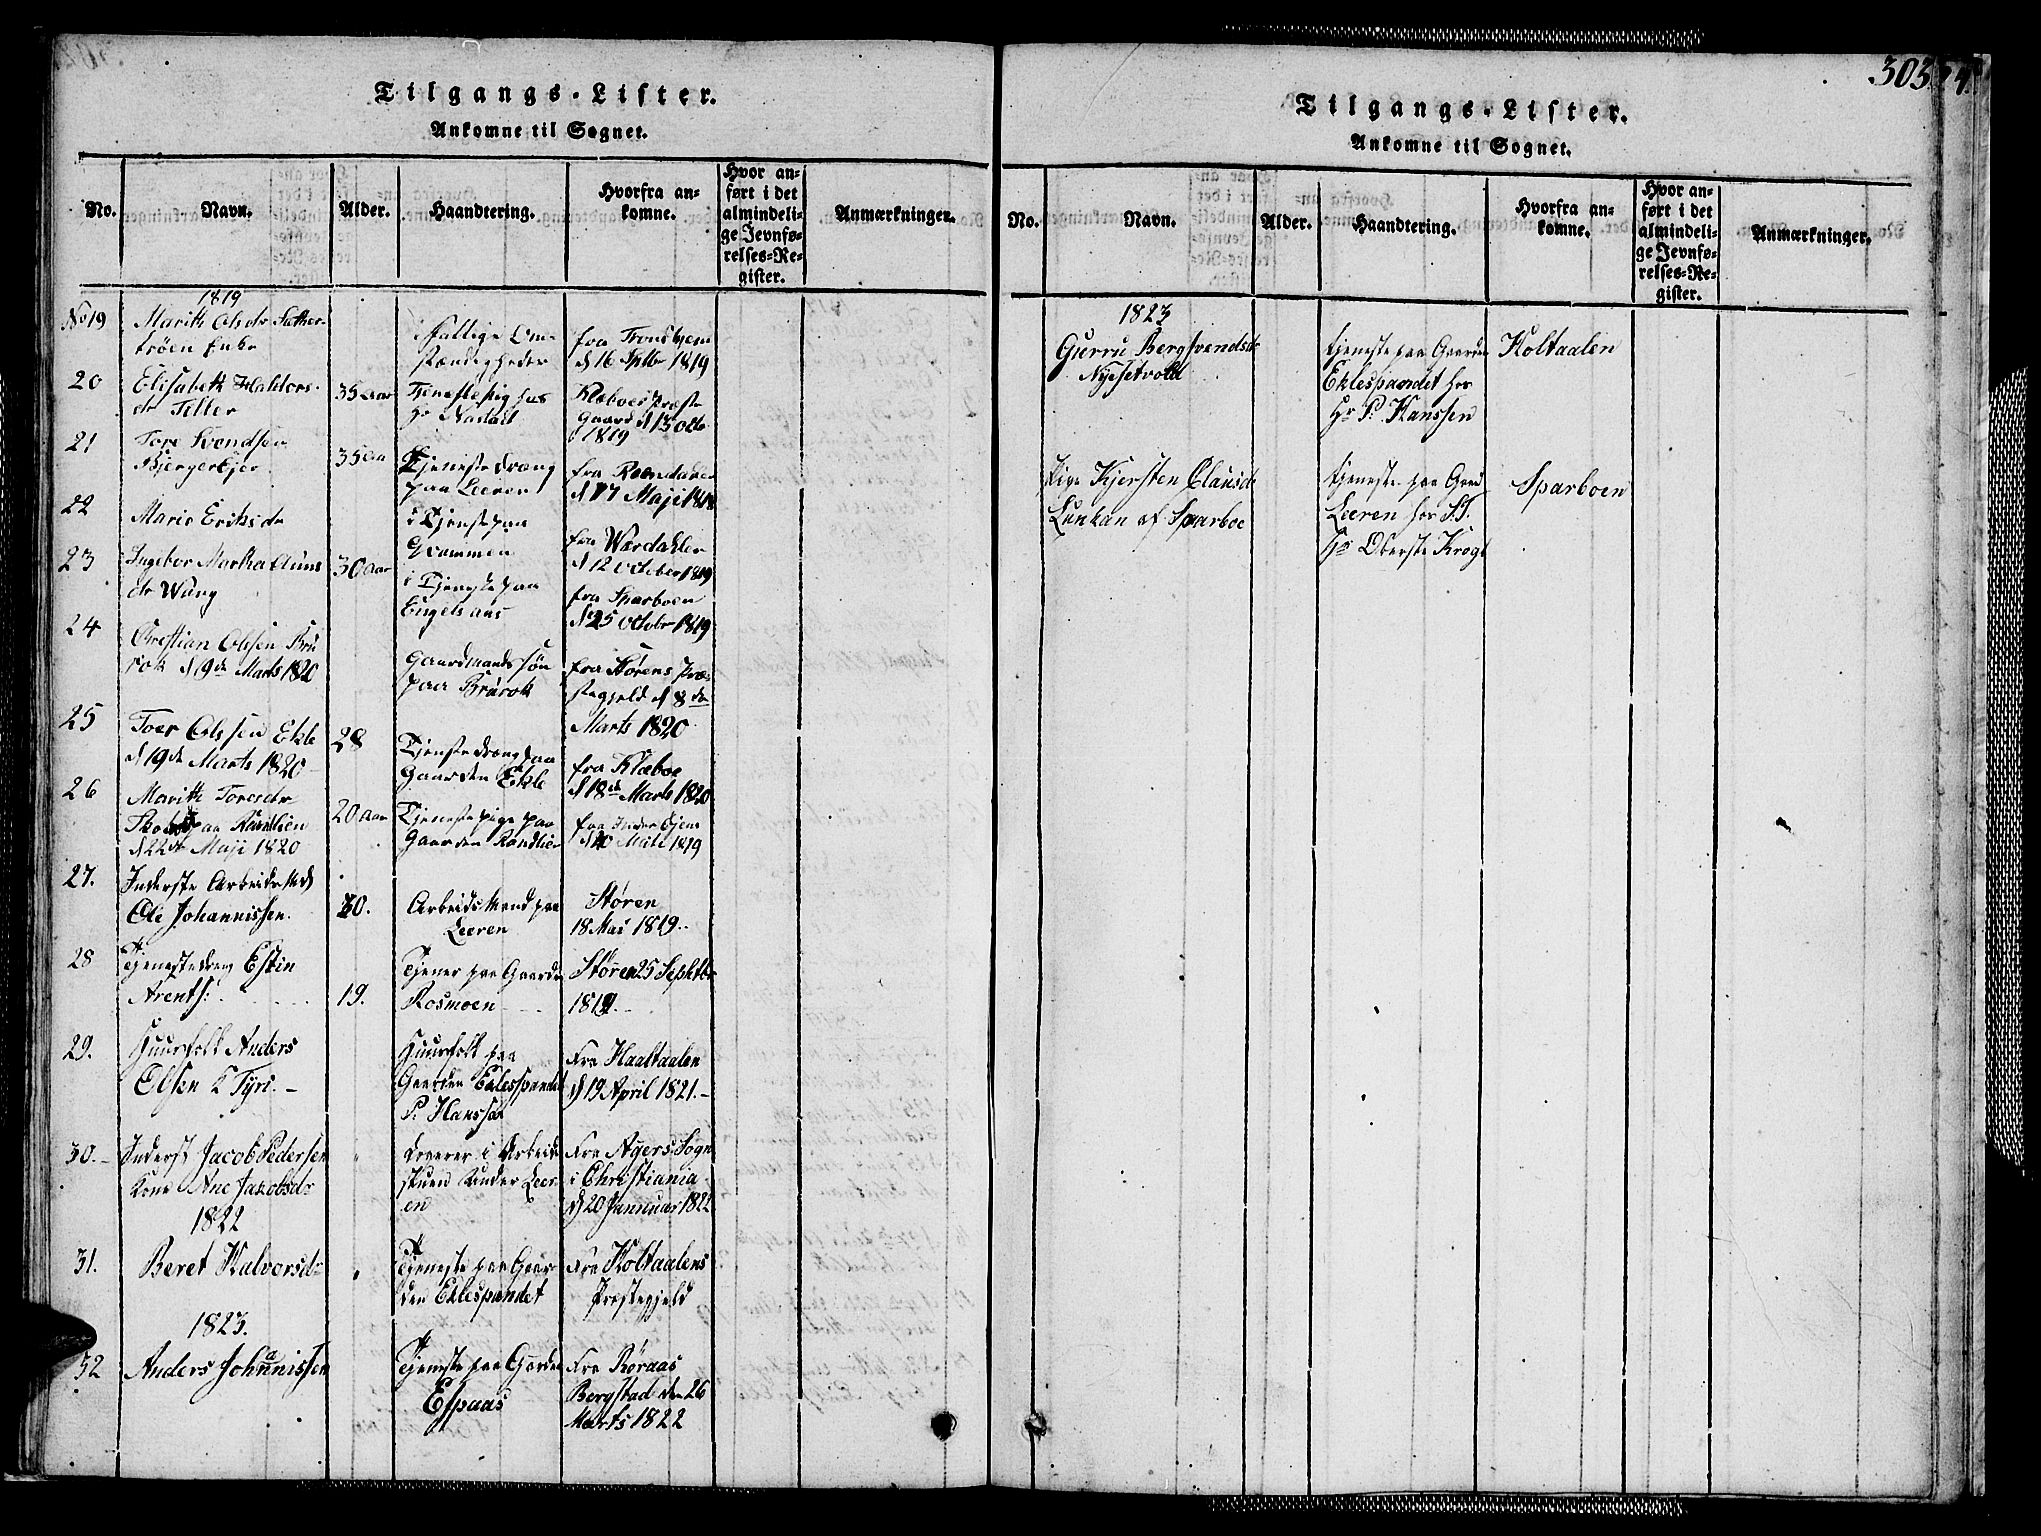 Tilgangs-Lister.
Ankomne til Sognet.
No.
Navn.
Alder.
Haandtering.
Hvorfra an-
komne.
Hvor an-
ført i det
almindeli-
ge Jevnfø-
relses-Re-
gister.
Anmærkninger.
1819
No 19
Marith Olsdr Sæther-
trøen Enke
fattige Om-
stændigheder
fra Trondhjem
d 16 Sptbr 1819
20
Elisabeth Haldors-
dr Teller
35 Aar
Tjenestepig hos
Hr
Klæboe Præste
Gaard d 13 Octb
1819
21
Tore Svendsen
35 Aa
Tjenestedræng
paa Leeren
fra
d 17 Maji 1818
22
Marie Eriksdr
i Tjeneste paa
Grammen
fra Værdahlen
d 12 October 1819
23
Ingebor Martha
dr Wang
30 Aar
i Tjeneste paa
Engelsaas
fra Sparboen
d 25 Octobr 1819
24
Christian Olssen Brü
rok d 19de Marts 1820
Gaardmands søn
paa Brürok
fra Størens Præ-
stegjeld d 8de
Marts 1820
25
Toer Olssen Ekle
d 19de Marts 1820
28
Tjenestedræng paa
Gaarden Ekle
fra Klæboe
d 18de Marts 1820
26
Marith Toresdr
paa Randlien
d 22de Maji 1820
20 Aar
Tjenestepige paa
Gaarden Randlien
fra Inder Øjen
1819
27.
Inderste Arbeidsmd
Ole Johannissen.
30.
Arbeids Mand paa
Leeren
Støren
18 Mai 1819.
28
Tjenestedreng Estin
Arents:
19.
Tjener paa Gaarden
Rosmoen
Støren 25 Septbr
1819.
29.
Huusfolk Anders
Olsen & Tyri.
Huusfolk paa
Gaarden Eklesspandet
P. Hanssen
Fra Haaltaalen
d 19 April 1821.
30.
Inderst Jacob Pedersen
Kone Ane Jacobsdr
i Arbeids
stuen under Leer-
en
Fra Agers Sogn
i Christiania
d 20 Januar 1822
1822
31.
Beret Halvorsdr
Tjeneste paa Gaar-
den Eklespandet
Fra Holtaalens
Præstegjeld
1823.
32
Anders Johannissen
Tjeneste paa Gaarden
Espaas
Fra Røraas
Bergstad den 26
Marts 1822
303
Tilgangs-Lister.
Ankomne til Sognet.
No.
Navn.
Alder.
Haandtering.
Hvorfra an-
komne.
Hvor an-
ført i det
almindeli-
ge Jevnfø-
relses-Re-
gister.
Anmærkninger.
1823
Gurru Bergsvendsdr
Nyesetvold
tjeneste paa Gaarden
Eklespandet hos
Hr P. Hanssen
Holtaalen
Pige Kjersten Clausdr
Lunkan af Sparboe
tjeneste paa Gaard
Leeren hos S.T.
Hr Oberste Krogh
Sparboen